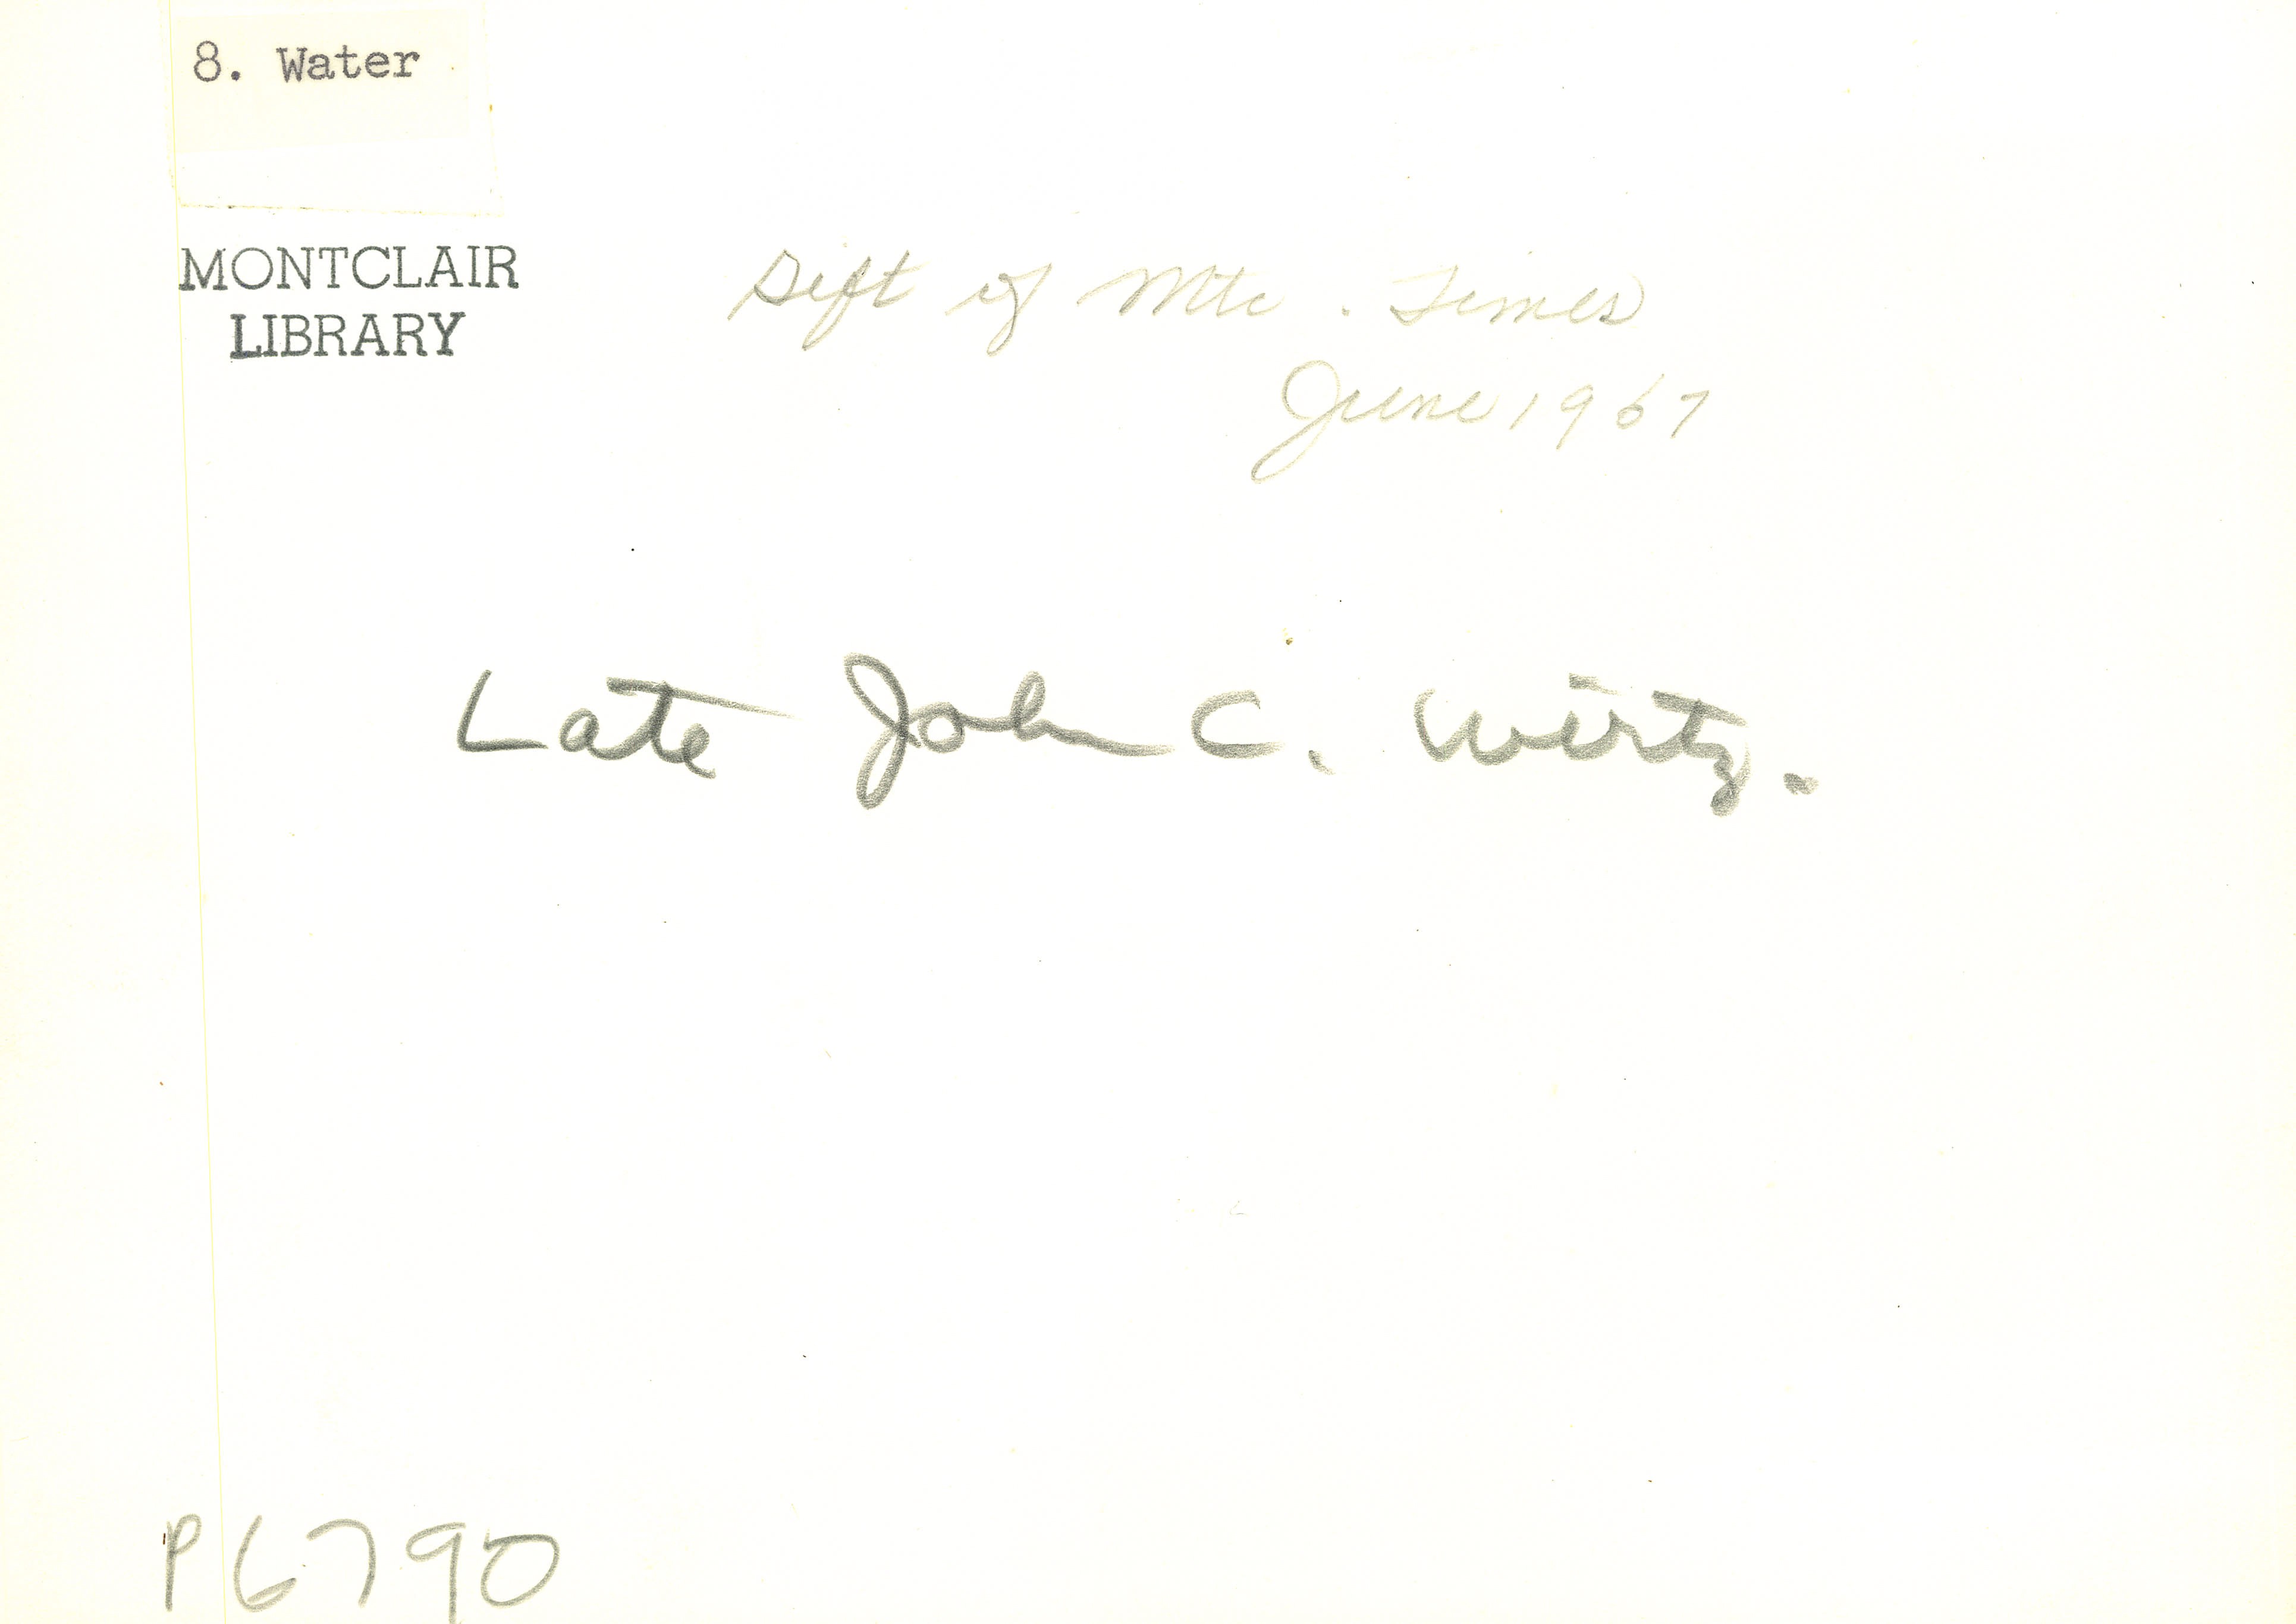 8. Water
MONTCLAIR
LIBRARY
Gift of Mtc. Times
June 1967
Late John C. Wirtz.
P6790